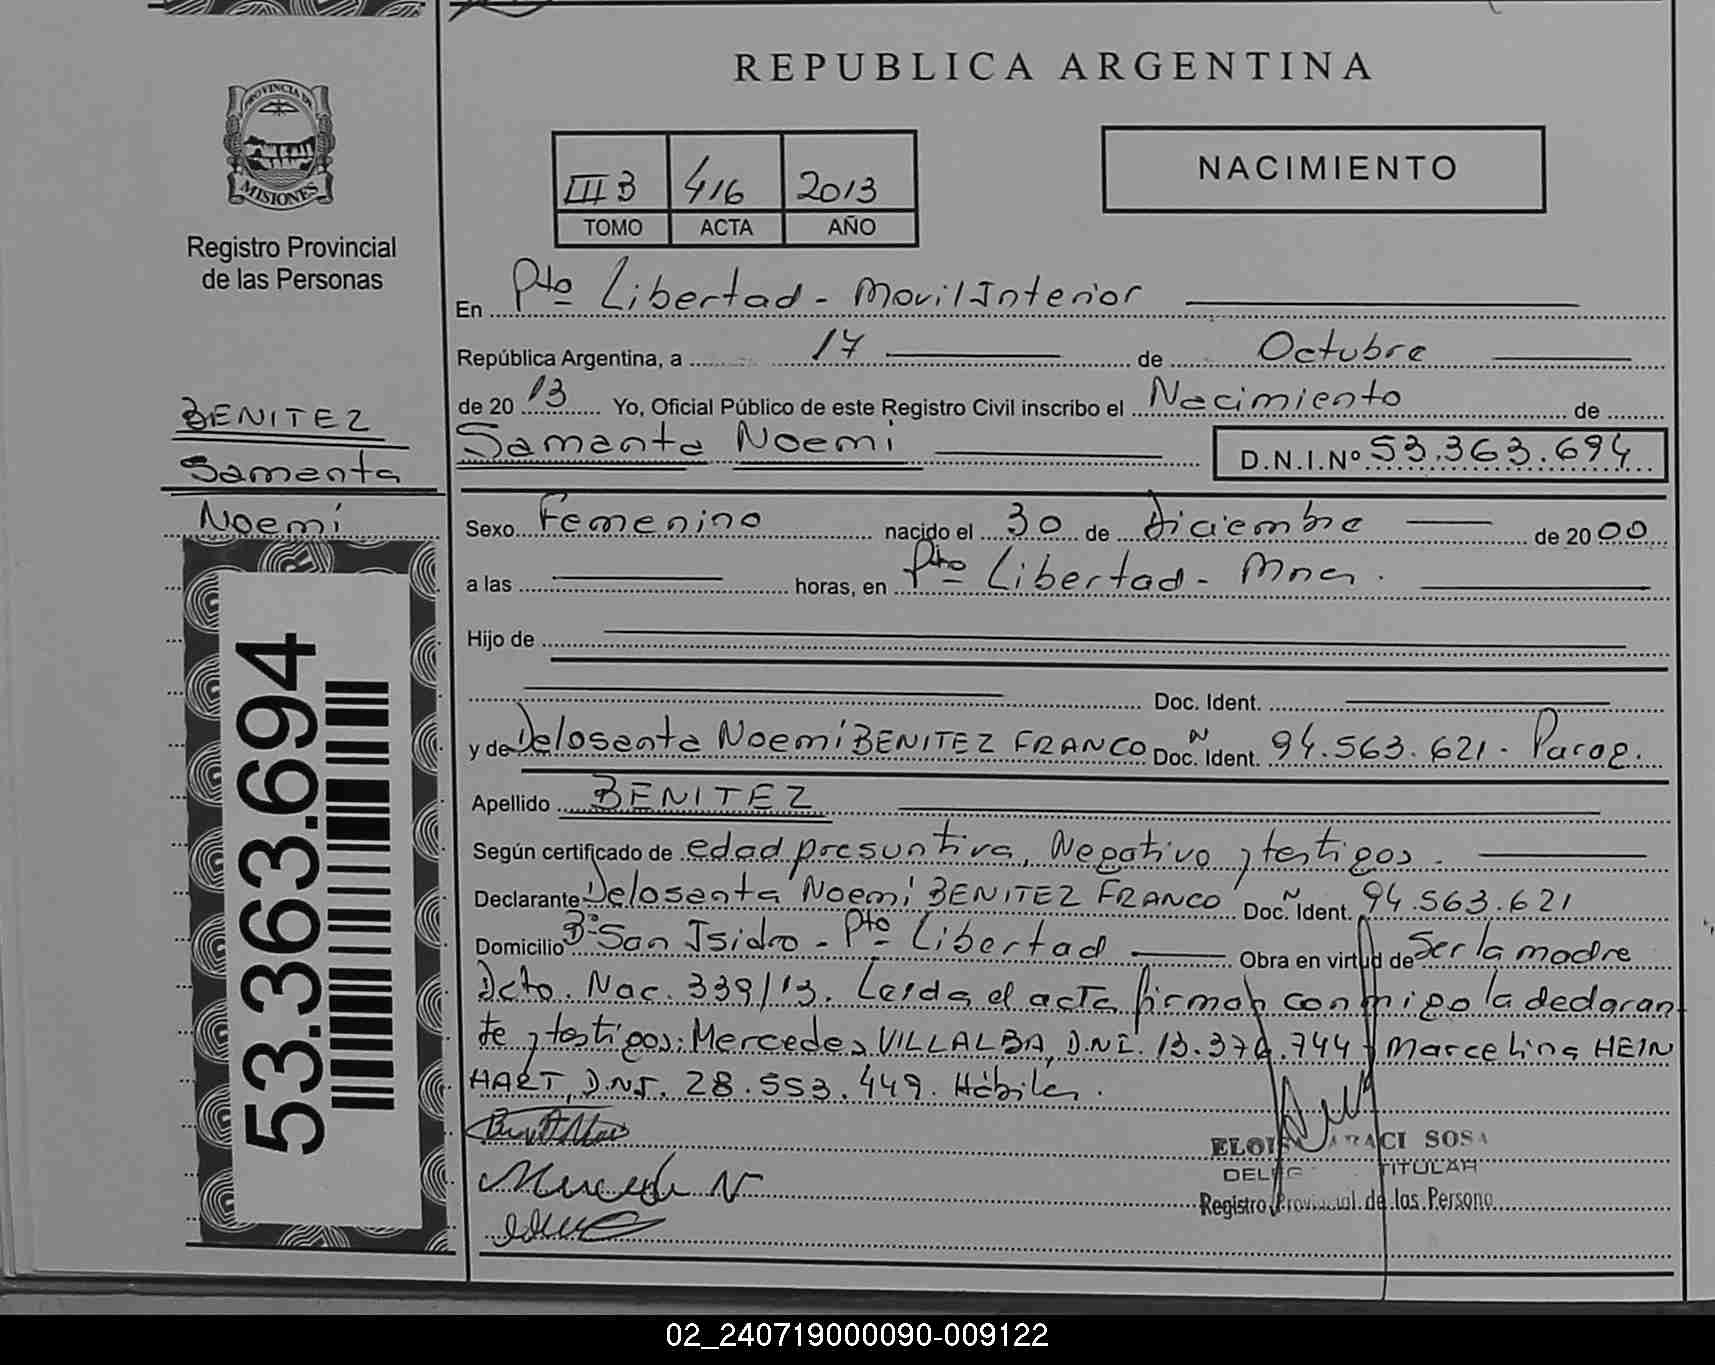 REPUBLICA ARGENTINA
PROVINCIA DE
MISIONES
Registro Provincial
de las Personas
III B 416 2013
TOMO ACTA AÑO
NACIMIENTO
En Pto Libertad - Movil Interior
República Argentina, a 17 de Octubre
de 20 13 Yo, Oficial Público de este Registro Civil inscribo el Nacimiento de
Samanta Noemi D.N.I.Nº 53.363.694
BENITEZ
Samanta
Noemi
Sexo Femenino nacido el 30 de Diciembre de 20 00
a las horas, en Pto Libertad - Mnes.
Hijo de
Doc. Ident.
y de Delosanta Noemi BENITEZ FRANCO Doc. Ident. 94.563.621 - Parag.
Apellido BENITEZ
Según certificado de edad presuntiva, Negativo y testigos.
Declarante Delosanta Noemi BENITEZ FRANCO Doc. Ident. 94.563.621
Domicilio Bº San Isidro - Pto Libertad Obra en virtud de Ser la madre
Dcto. Nac. 339/13. Leida el acta firman conmigo la declaran-
te y testigos: Mercedes VILLALBA, D.N.I. 13.376.744 y Marcelina HEIN
HART, D.N.I. 28.553.449. Hábiles.
ELOISA ARACI SOSA
TITULAR
Registro Provincial de las Persona
53.363.694
02_240719000090-009122